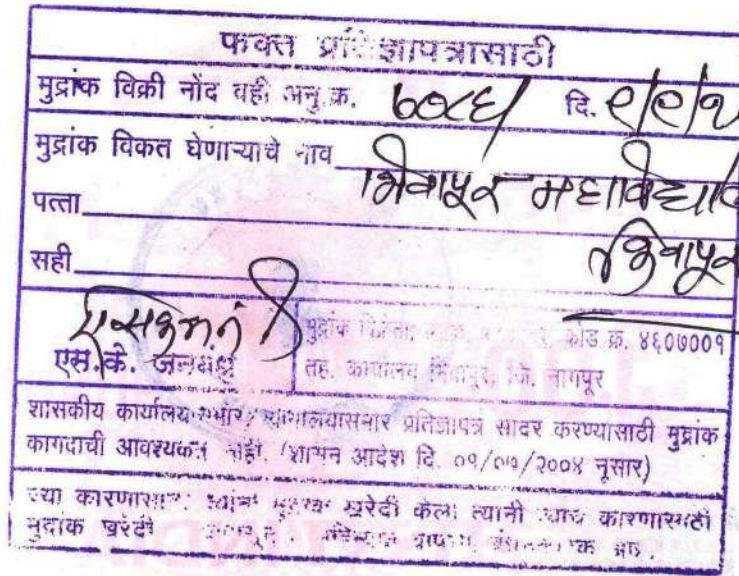 फक्त प्रतिज्ञापत्रासाठी
मुद्रांक विक्री नोंद वही अनु.क्र. ७०८६/ दि. ९/९/१
मुद्रांक विकत घेणाऱ्याचे नाव भिवापूर महाविद्याल
पत्ता भिवापूर
सही
एस.के. जनबंधू
मुद्रांक कोड क्र. ४६०७००१
तह. कार्यालय भिवापूर, जि. नागपूर
शासकीय कार्यालयासमोर/ न्यायालयासमोर प्रतिज्ञापत्र सादर करण्यासाठी मुद्रांक
कागदाची आवश्यकता नाही. (शासन आदेश दि. ०१/०७/२००४ नूसार)
ज्या कारणासाठी ज्यांनी मुद्रांक खरेदी केला त्यांनी त्याच कारणासाठी
मुद्रांक खरेदी